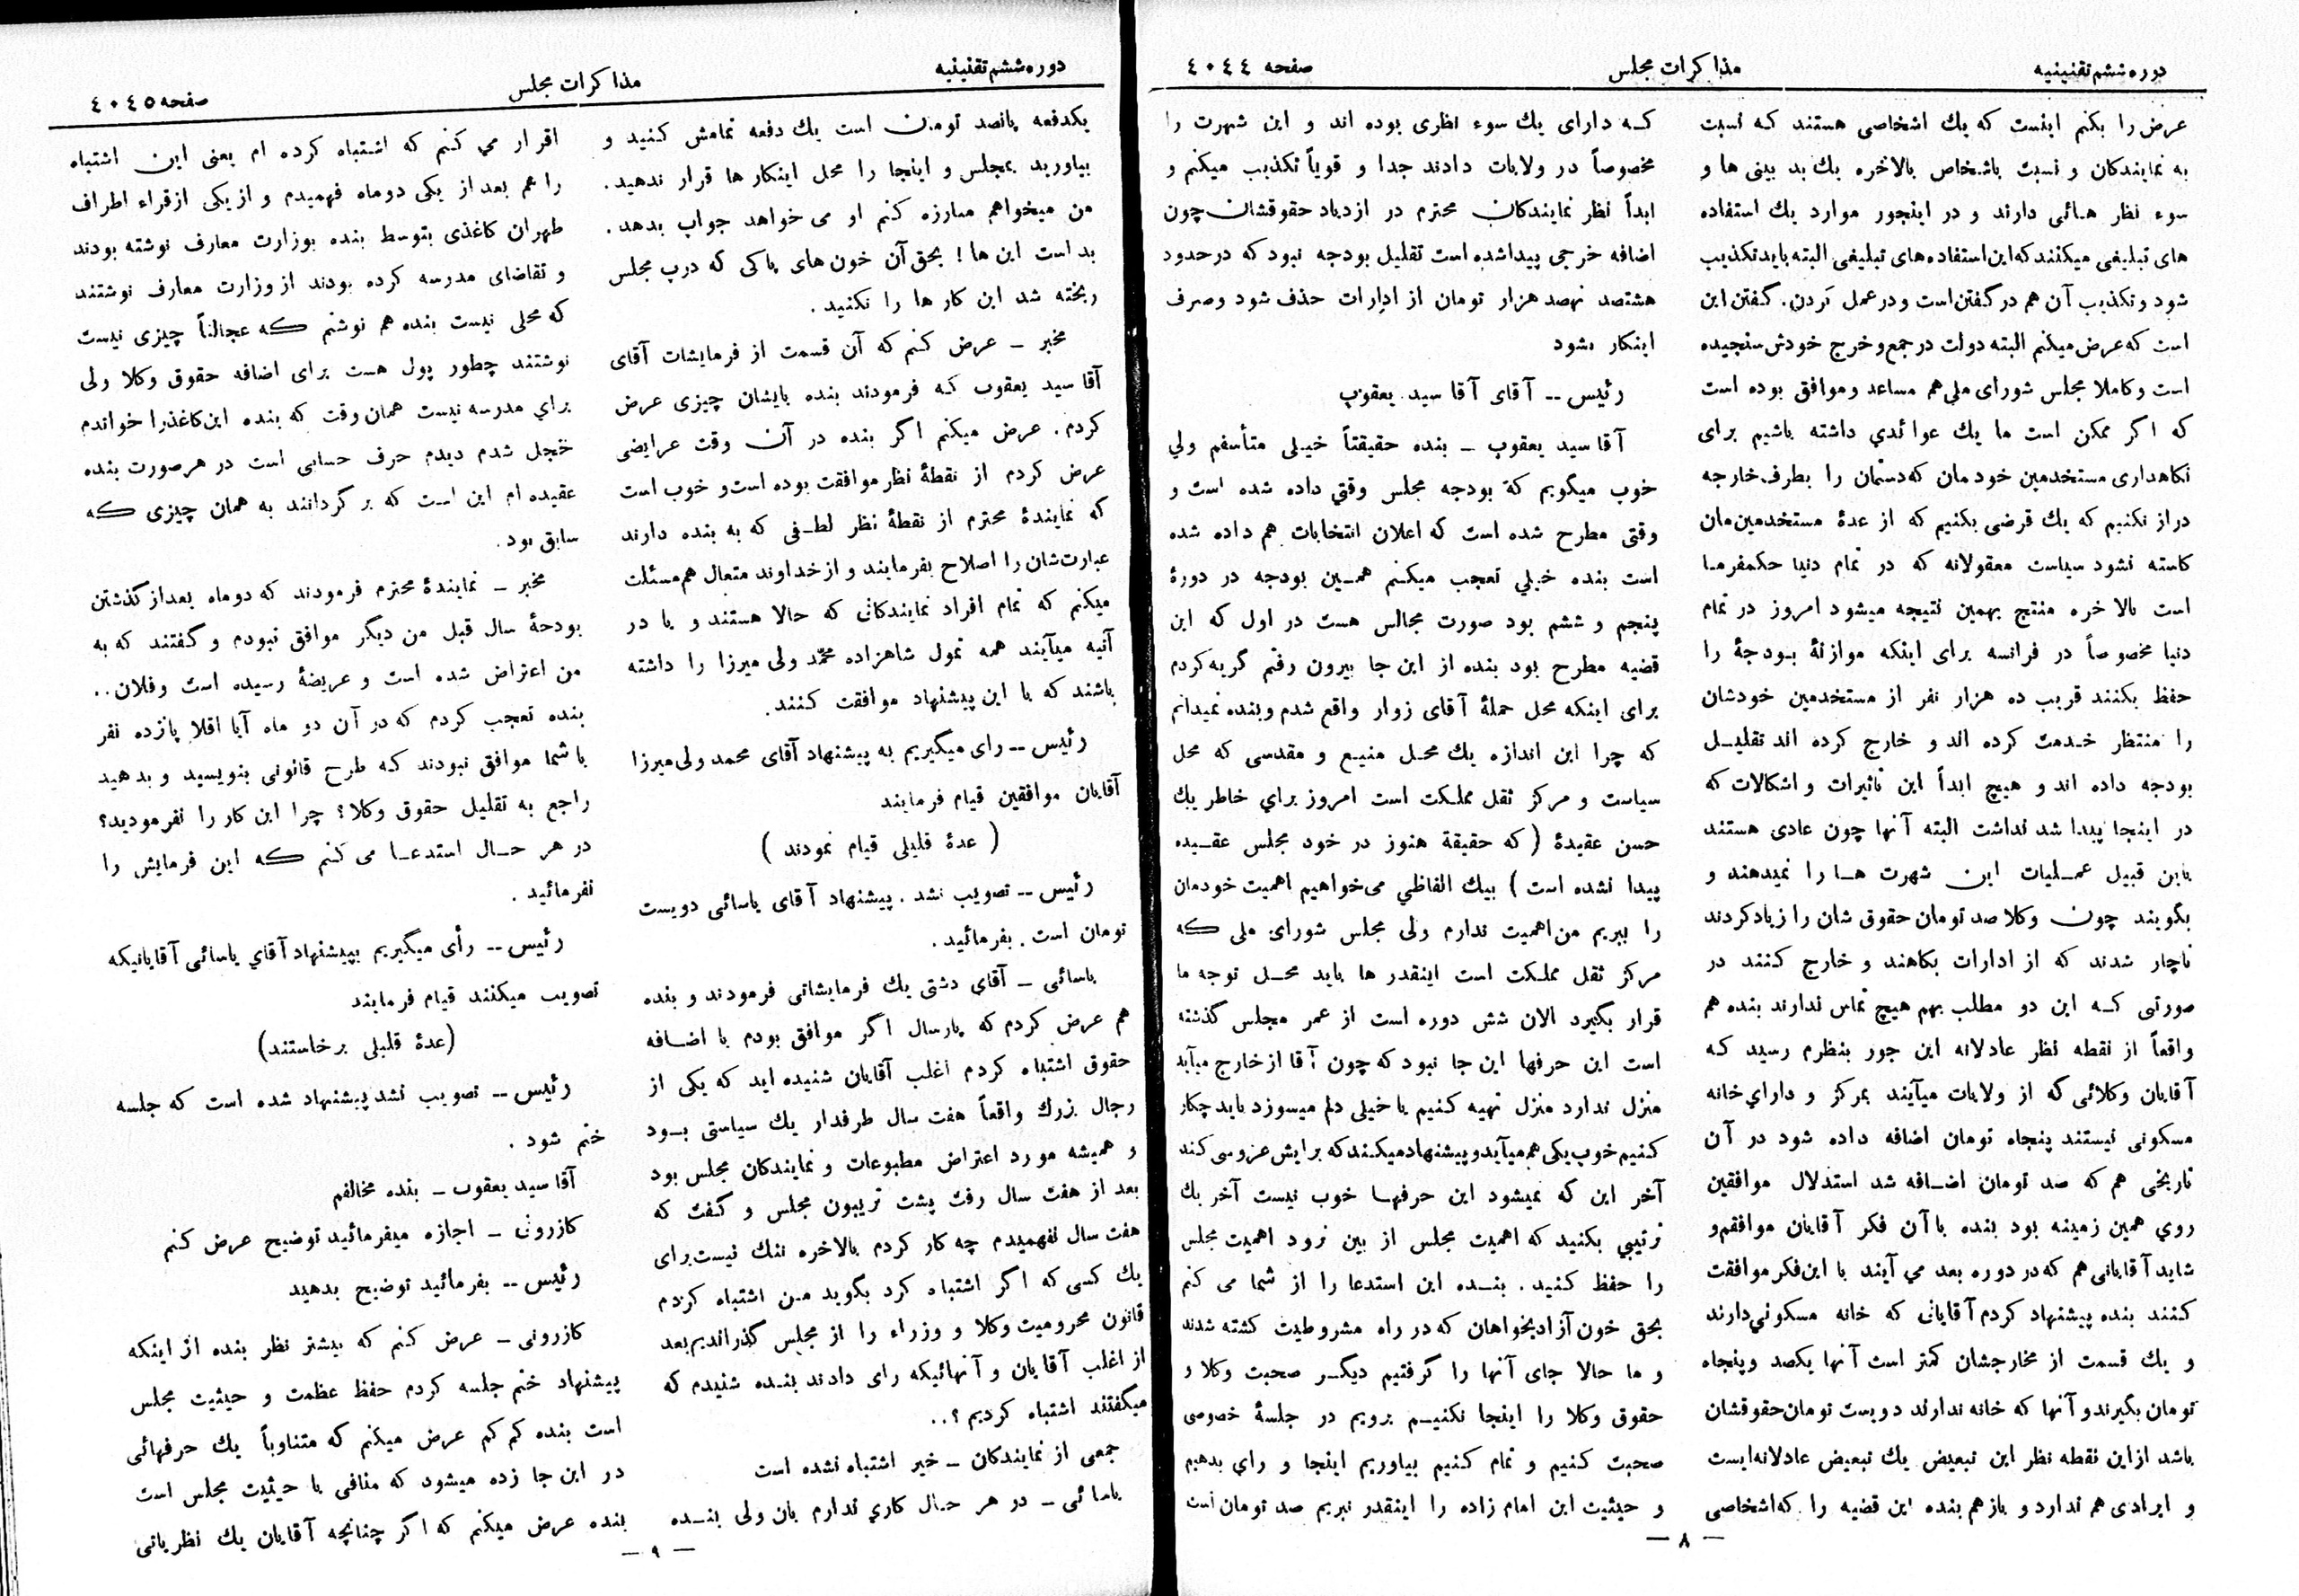 دوره ششم تقنینیه
مذاکرات مجلس
صفحه ٤٠٤٤
عرض را بکنم اینست که یك اشخاصی هستند که نسبت
به نمایندگان و نسبت باشخاص بالاخره یك بد بینی ها و
سوء نظر هائی دارند و در اینجور موارد یك استفاده
های تبلیغی میکنند که این استفاده‌های تبلیغی البته باید تکذیب
شود و تکذیب آن هم در گفتن است و در عمل کردن. گفتن این
است که عرض میکنم البته دولت در جمع و خرج خودش سنجیده
است و کاملا مجلس شورای ملی هم مساعد و موافق بوده است
که اگر ممکن است ما یك عوائدي داشته باشیم برای
نگاهداری مستخدمین خودمان که دستمان را بطرف خارجه
دراز نکنیم که یك قرضی بکنیم که از عدهٔ مستخدمین‌مان
کاسته نشود سیاست معقولانه که در تمام دنیا حکمفرما
است بالاخره منتج بهمین نتیجه میشود امروز در تمام
دنیا مخصوصاً در فرانسه برای اینکه موازنهٔ بودجهٔ را
حفظ بکنند قریب ده هزار نفر از مستخدمین خودشان
را منتظر خدمت کرده اند و خارج کرده اند تقلیل
بودجه داده اند و هیچ ابداً این تاثیرات و اشکالات که
در اینجا پیدا شد نداشت البته آنها چون عادی هستند
باین قبیل عملیات این شهرت ها را نمیدهند و
بگویند چون وکلا صد تومان حقوق شان را زیاد کردند
ناچار شدند که از ادارات بکاهند و خارج کنند در
صورتی که این دو مطلب بهم هیچ تماس ندارند بنده هم
واقعاً از نقطه نظر عادلانه این جور بنظرم رسید که
آقایان وکلائی که از ولایات میآیند بمرکز و داراي خانه
مسکونی نیستند پنجاه تومان اضافه داده شود در آن
تاریخی هم که صد تومان اضافه شد استدلال موافقین
روي همین زمینه بود بنده با آن فکر آقایان موافقم و
شاید آقایانی هم که در دوره بعد می آیند با این فکر موافقت
کنند بنده پیشنهاد کردم آقایانی که خانه مسکوني دارند
و یك قسمت از مخارجشان کمتر است آنها یکصد و پنجاه
تومان بگیرند و آنها که خانه ندارند دویست تومان حقوقشان
باشد از این نقطه نظر این تبعیض یك تبعیض عادلانه‌ایست
و ایرادی هم ندارد و باز هم بنده این قضیه را که اشخاصی
که دارای یك سوء نظری بوده اند و این شهرت را
مخصوصاً در ولایات دادند جدا و قویاً تکذیب میکنم و
ابداً نظر نمایندگان محترم در ازدیاد حقوقشان چون
اضافه خرجی پیدا شده است تقلیل بودجه نبود که در حدود
هشتصد نهصد هزار تومان از ادارات حذف شود و صرف
اینکار بشود
رئیس -- آقای آقا سید یعقوب
آقا سید یعقوب - بنده حقیقتاً خیلی متأسفم ولي
خوب میگویم که بودجه مجلس وقتي داده شده است و
وقتی مطرح شده است که اعلان انتخابات هم داده شده
است بنده خیلي تعجب میکنم همین بودجه در دورهٔ
پنجم و ششم بود صورت مجالس هست در اول که این
قضیه مطرح بود بنده از این جا بیرون رفتم گریه کردم
برای اینکه محل حملهٔ آقای زوار واقع شدم و بنده نمیدانم
که چرا این اندازه یك محل منیع و مقدسی که محل
سیاست و مرکز ثقل مملکت است امروز براي خاطر یك
حسن عقیدهٔ (که حقیقة هنوز در خود مجلس عقیده
پیدا نشده است) بیك الفاظي می‌خواهیم اهمیت خودمان
را ببریم من اهمیت ندارم ولی مجلس شورای ملی که
مرکز ثقل مملکت است اینقدر ها باید محل توجه ما
قرار بگیرد الان شش دوره است از عمر مجلس گذشته
است این حرفها این جا نبود که چون آقا از خارج میآید
منزل ندارد منزل تهیه کنیم یا خیلی دلم میسوزد باید چکار
کنیم خوب یکی هم میآید و پیشنهاد میکند که برایش عروسی کند
آخر این که نمیشود این حرفها خوب نیست آخر یك
ترتیبي بکنید که اهمیت مجلس از بین نرود اهمیت مجلس
را حفظ کنید. بنده این استدعا را از شما می کنم
بحق خون آزادیخواهان که در راه مشروطیت کشته شدند
و ما حالا جای آنها را گرفتیم دیگر صحبت وکلا و
حقوق وکلا را اینجا نکنیم برویم در جلسهٔ خصوصی
صحبت کنیم و تمام کنیم بیاوریم اینجا و راي بدهیم
و حیثیت این امام زاده را اینقدر نبریم صد تومان است
— ۸ —
دوره ششم تقنینیه
مذاکرات مجلس
صفحه ٤٠٤٥
یکدفعه پانصد تومان است یك دفعه تمامش کنید و
بیاورید بمجلس و اینجا را محل اینکار ها قرار ندهید.
من میخواهم مبارزه کنم او می خواهد جواب بدهد.
بد است این ها! بحق آن خون های پاکی که درب مجلس
ریخته شد این کار ها را نکنید.
مخبر - عرض کنم که آن قسمت از فرمایشات آقای
آقا سید یعقوب که فرمودند بنده بایشان چیزی عرض
کردم. عرض میکنم اگر بنده در آن وقت عرایضی
عرض کردم از نقطهٔ نظر موافقت بوده است و خوب است
که نمایندهٔ محترم از نقطهٔ نظر لطفی که به بنده دارند
عبارت‌شان را اصلاح بفرمایند و از خداوند متعال هم مسئلت
میکنم که تمام افراد نمایندگانی که حالا هستند و یا در
آتیه میآیند همه تمول شاهزاده محمّد ولی میرزا را داشته
باشند که با این پیشنهاد موافقت کنند.
رئیس -- رای میگیریم به پیشنهاد آقای محمد ولی میرزا
آقایان موافقین قیام فرمایند
(عدهٔ قلیلی قیام نمودند)
رئیس -- تصویب نشد. پیشنهاد آقای یاسائی دویست
تومان است. بفرمائید.
یاسائی - آقای دشتی یك فرمایشاتی فرمودند و بنده
هم عرض کردم که پارسال اگر موافق بودم با اضافه
حقوق اشتباه کردم اغلب آقایان شنیده اید که یکی از
رجال بزرك واقعاً هفت سال طرفدار یك سیاستی بود
و همیشه مورد اعتراض مطبوعات و نمایندکان مجلس بود
بعد از هفت سال رفت پشت تریبون مجلس و گفت که
هفت سال نفهمیدم چه کار کردم بالاخره ننك نیست برای
یك کسی که اگر اشتباه کرد بگوید من اشتباه کردم
قانون محرومیت وکلا و وزراء را از مجلس گذراندیم بعد
از اغلب آقایان و آنهائیکه رای دادند بنده شنیدم که
میگفتند اشتباه کردیم؟..
جمعی از نمایندکان - خیر اشتباه نشده است
یاسائی - در هر حال کاري ندارم بان ولی بنده
اقرار می کنم که اشتباه کرده ام یعنی این اشتباه
را هم بعد از یکی دو ماه فهمیدم و از یکی از قراء اطراف
طهران کاغذی بتوسط بنده بوزارت معارف نوشته بودند
و تقاضای مدرسه کرده بودند از وزارت معارف نوشتند
که محلی نیست بنده هم نوشتم که عجالتاً چیزی نیست
نوشتند چطور پول هست برای اضافه حقوق وکلا ولی
براي مدرسه نیست همان وقت که بنده این کاغذ را خواندم
خجل شدم دیدم حرف حسابی است در هر صورت بنده
عقیده ام این است که بر گردانند به همان چیزی که
سابق بود.
مخبر - نمایندهٔ محترم فرمودند که دو ماه بعد از گذشتن
بودجهٔ سال قبل من دیگر موافق نبودم و گفتند که به
من اعتراض شده است و عریضهٔ رسیده است و فلان..
بنده تعجب کردم که در آن دو ماه آیا اقلا پانزده نفر
با شما موافق نبودند که طرح قانونی بنویسید و بدهید
راجع به تقلیل حقوق وکلا؟ چرا این کار را نفرمودید؟
در هر حال استدعا می کنم که این فرمایش را
نفرمائید.
رئیس -- رأی میگیریم بپیشنهاد آقاي یاسائی آقایانیکه
تصویب میکنند قیام فرمایند
(عدهٔ قلیلی برخاستند)
رئیس -- تصویب نشد پیشنهاد شده است که جلسه
ختم شود.
آقا سید یعقوب - بنده مخالفم
کازرونی - اجازه میفرمائید توضیح عرض کنم
رئیس -- بفرمائید توضیح بدهید
کازرونی - عرض کنم که بیشتر نظر بنده از اینکه
پیشنهاد ختم جلسه کردم حفظ عظمت و حیثیت مجلس
است بنده کم کم عرض میکنم که متناوباً یك حرفهائی
در این جا زده میشود که منافی با حیثیت مجلس است
بنده عرض میکنم که اگر چنانچه آقایان یك نظریاتی
— ۹ —